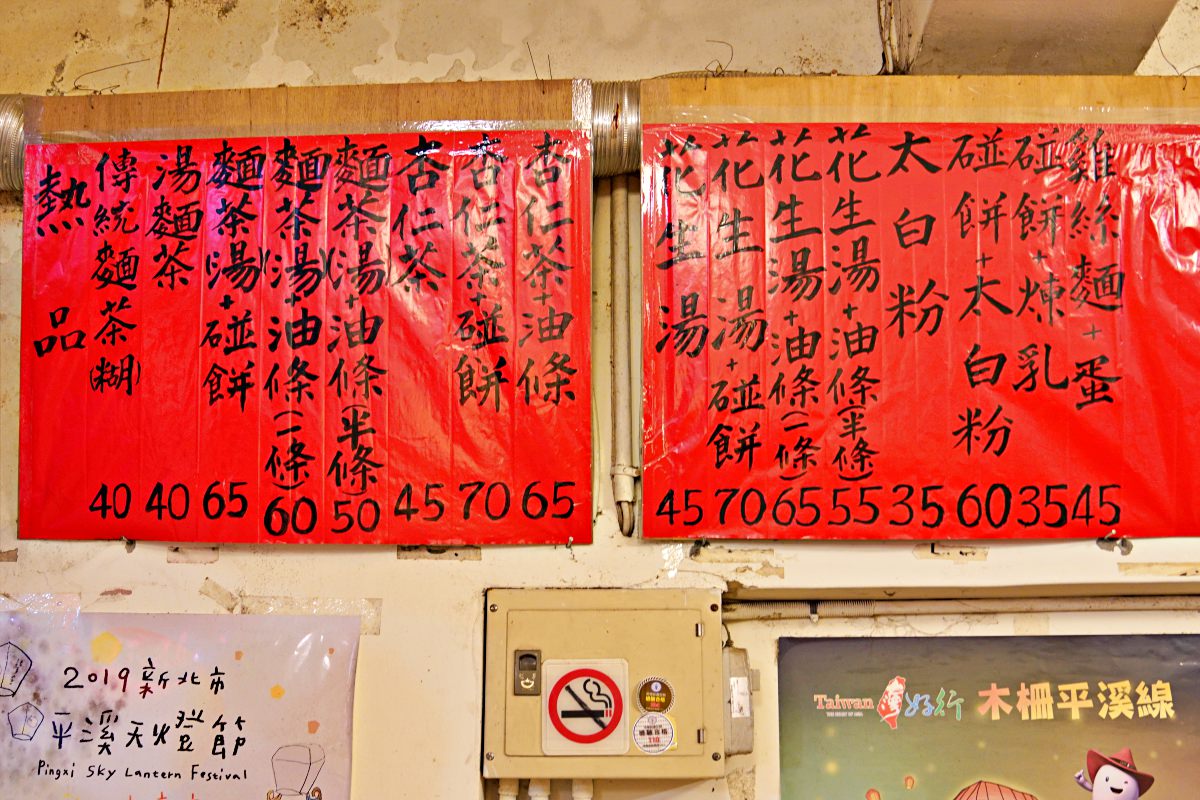 熱品
傳統麵茶(糊) 40
湯麵茶 40
麵茶(湯)+碰餅 65
麵茶(湯)+油條(一條) 60
麵茶(湯)+油條(半條) 50
杏仁茶 45
杏仁茶+碰餅 70
杏仁茶+油條 65
花生湯 45
花生湯+碰餅 70
花生湯+油條(一條) 65
花生湯+油條(半條) 55
太白粉 35
碰餅+太白粉 60
碰餅+煉乳 35
雞絲麵+蛋 45
2019 新北市
平溪天燈節
Pingxi Sky Lantern Festival
Taiwan 好行 木柵平溪線